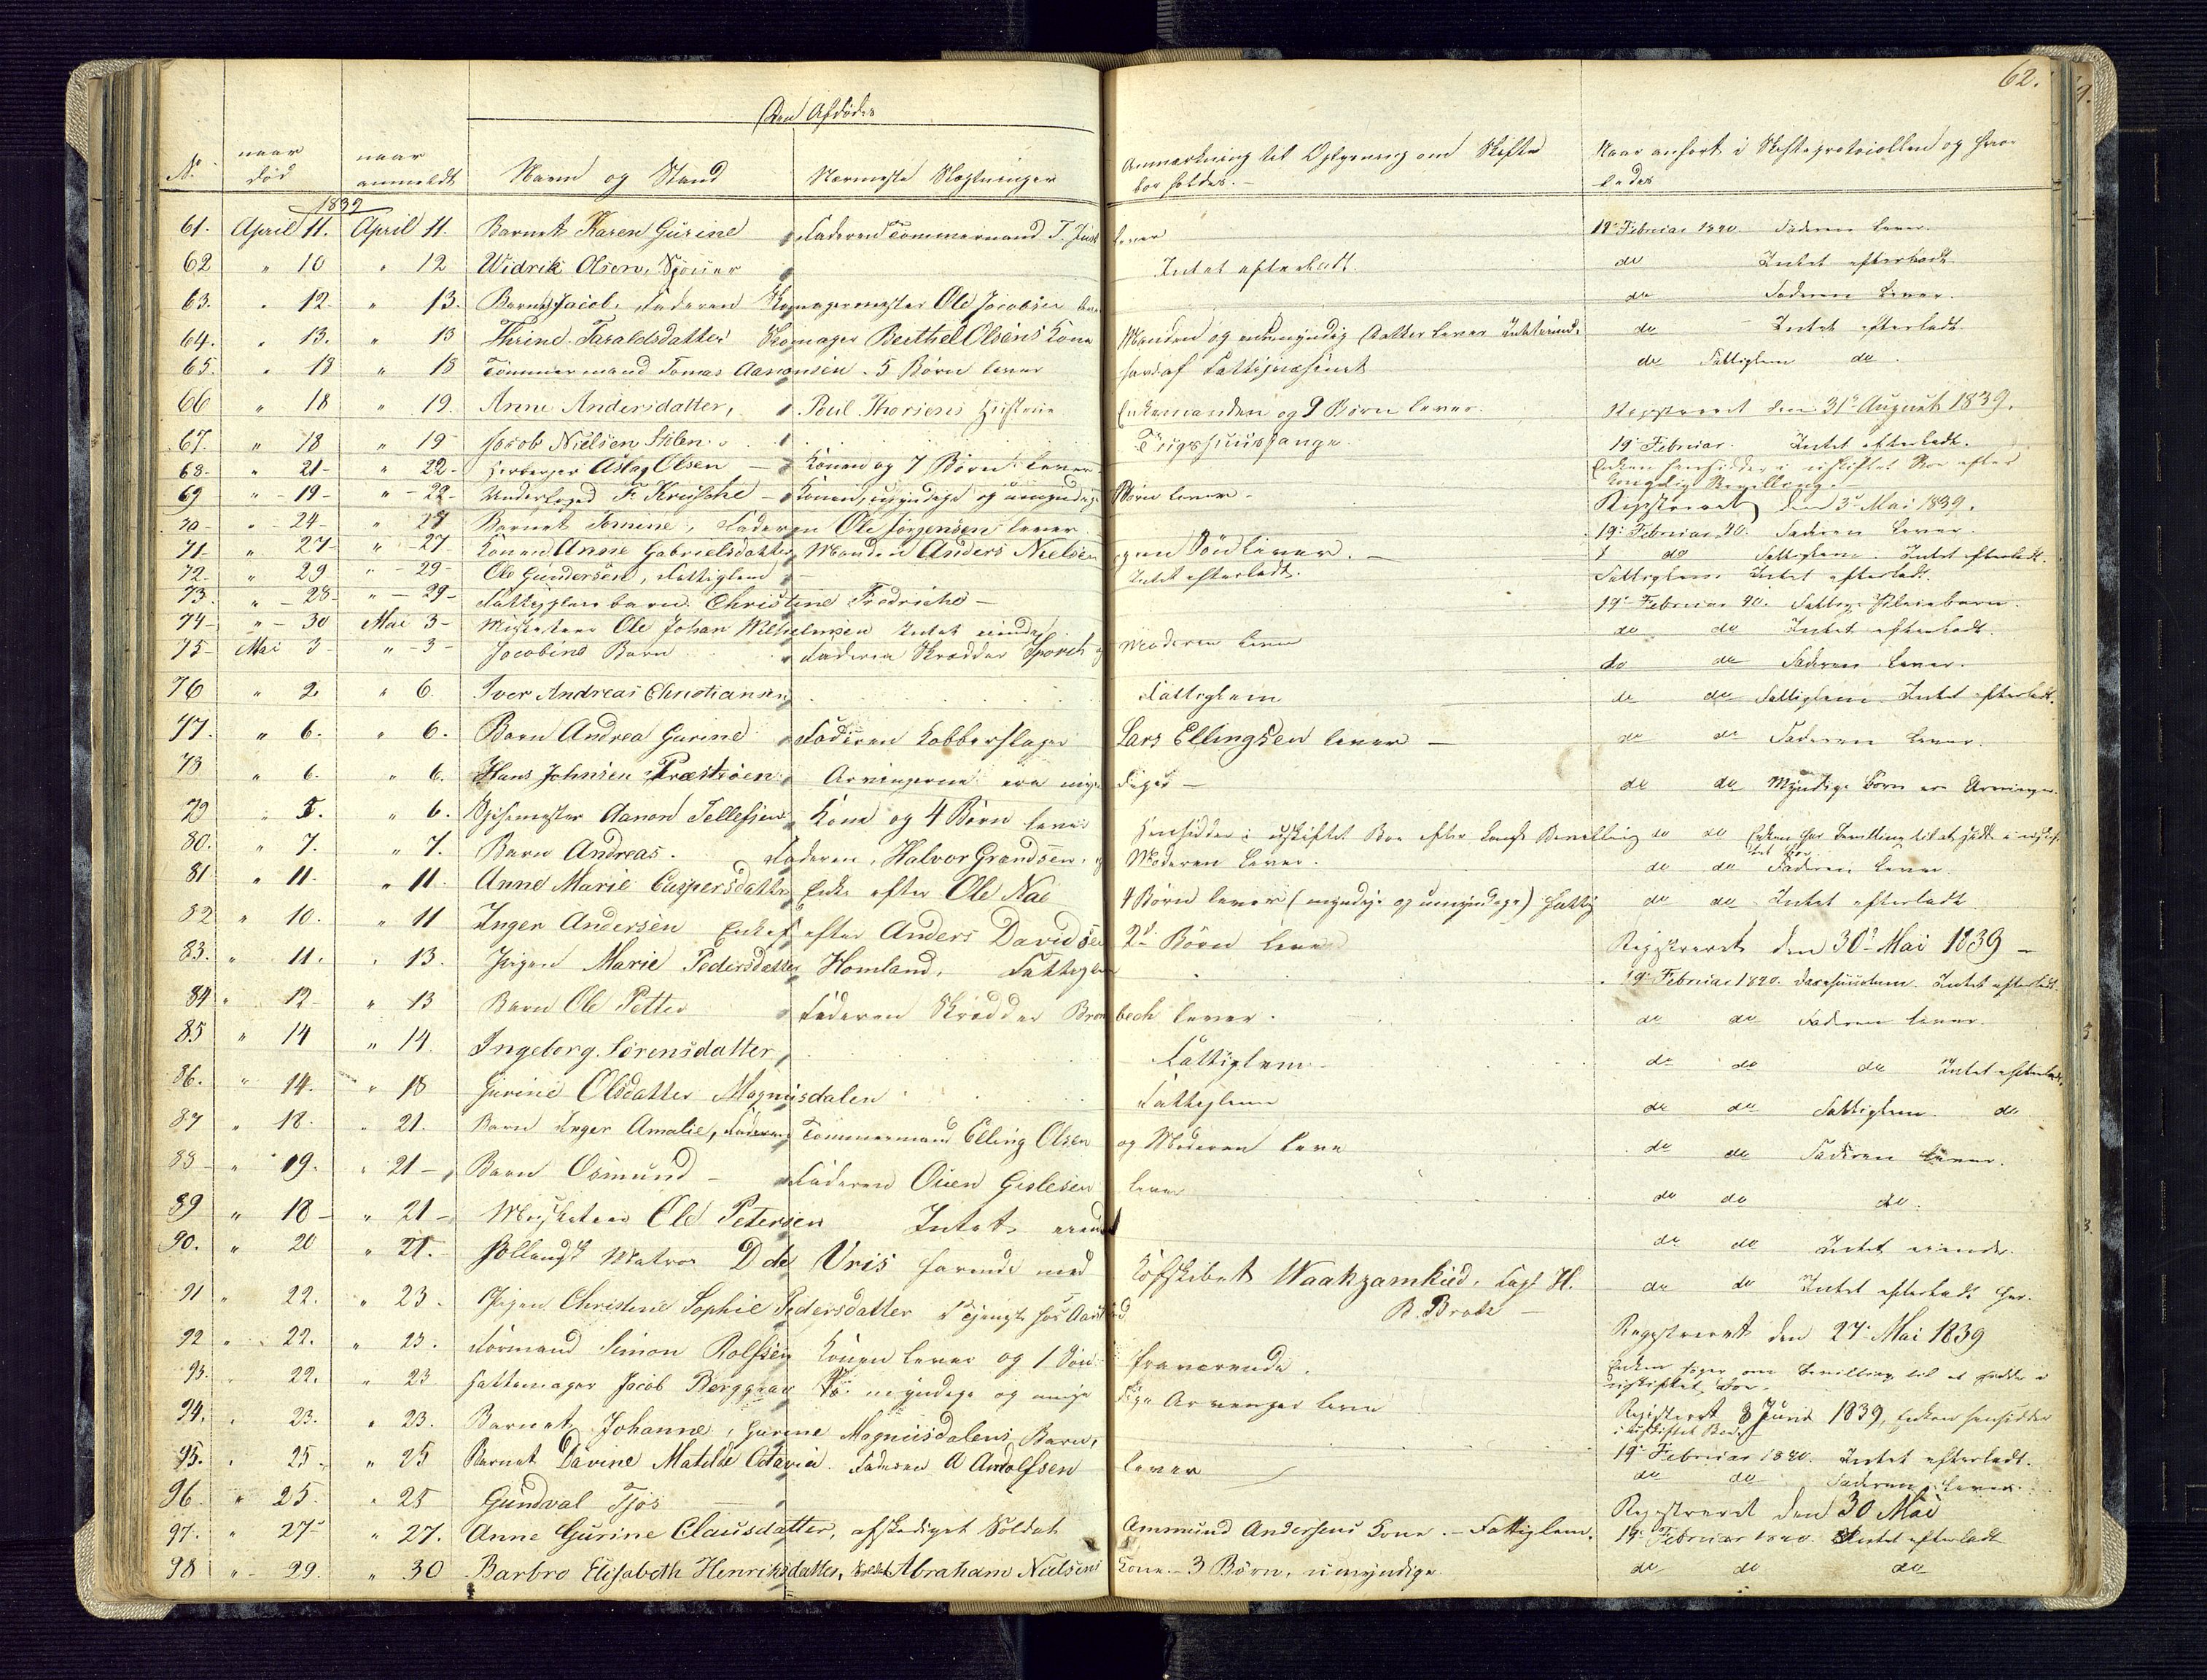 62.
Den Afdødes
No. naar død naar anmeldt Navn og Stand Nærmeste Slægtninger Anmærkning til Oplysning om Skifte bør holdes. Naar anført i Skifteprotocollen og hvorledes
1839
61. April 11. April 11. Barnet Karen Gurine Faderen Tømmermand T. lever 19 Februar 1840 Faderen lever.
62 " 10 " 12 Widrik Olsen, Intet efterladt do Intet efterladt
63. " 12 " 13. Barnet Jacob. Faderen Skomagermester Ole Jacobsen lever do Faderen lever.
64. " 13. " 13 Thrine Taraldsdatter Skomager Berthel Olsens Kone Manden og umyndig Datter lever do Intet efterladt
65. " 18 " 18 Tømmermand Tomas Aanonsen. 5 Børn lever do Fattiglem do
66 " 18 " 19. Anne Andersdatter, Poul Thorsens Hustrue Enkemanden og 9 Børn lever. Registreret den 31 August 1839.
67. " 18 " 19 Jacob Nielsen Stilen. 19 Februar. Intet efterladt.
68. " 21 " 22 Aslag Olsen Konen og 7 Børn lever. Enken hensidder i uskiftet Boe efter kongelig Bevilling.
69 " 19 " 22 Underfoged F. Krusche Konen, myndige og umyndige Børn lever. Registreret den 3 Mai 1839.
70 " 24 " 27 Barnet Tomine, Faderen Ole Jørgensen lever 19 Februar 40. Faderen lever.
71 " 27 " 27 Konen Anne Gabrielsdatter, Manden Anders Nielsen og en Søn lever. do Fattiglem. Intet efterladt.
72. " 29 " 29 Ole Gundersen, Fattiglem Intet efterladt. Fattiglem. Intet efterladt.
73. " 28 " 29 Fattiglems barn. Christine Fredrikke 19 Februar 40. Fattig Pleiebarn.
74 " 30 Mai 3 Ole Johan Wilhelmsen Intet do do Intet efterladt.
75 Mai 3 " 3 Jacobine Barn Faderen Skrædder og Moderen lever do do Faderen lever.
76 " 2 " 6. Iver Andreas Christiansen Fattiglem do do Fattiglem. Intet efterladt.
77. " 6. " 6. Barn Andrea Gurine Faderen Kobberslager Lars Ellingsen lever do do Faderen lever.
78 " 6. " 6. Hans Johnsen Arvingerne ere myndige do do Myndige Børn ere Arvinger.
79 " 5. " 6. Aanon Tellefsen Kone og 4 Børn lever Hensidder i uskiftet Boe efter Bevilling do do Enken har Bevilling til at sidde i uskiftet Boe
80. " 7. " 7. Barn Andreas. Faderen, Halvor Grandsen. og Moderen lever. do do Faderen lever.
81 " 11. " 11. Anne Marie Caspersdatter Enke efter Ole Næs 4 Børn lever (myndige og umyndige) fattig do do Intet efterladt
82 " 10. " 11 Inger Andersen Enke efter Anders Davidsen 2 Børn lever Registreret den 30 Mai 1839
83. " 11. " 13. Pigen Marie Pedersdatter Homland, Fattiglem 19 Februar 1840. Intet efterladt
84 " 12 " 13 Barn Ole Petter Faderen Skrædder Brombech lever. do do Faderen lever.
85 " 14 " 14 Ingeborg Sørensdatter, Fattiglem do do do Intet efterladt
86. " 14. " 18 Gurine Olsdatter Magnusdalen Fattiglem do do Fattiglem. do
87 " 18. " 21. Barn Inger Amalie, Faderen Tømmermand Elling Olsen og Moderen leve do do Faderen lever.
88 " 19. " 21 Barn Osmund Faderen Ouen Gislesen lever do do do.
89 " 18 " 21 Ole Petersen Intet do do Intet
90. " 20 " 21. Hollandsk Matros D de Vris farende med Kofskibet Waakzamkied, Capt H. do do Intet efterladt her.
B. Brak
91 " 22. " 23. Pigen Christine Sophie Pedersdatter Registreret den 27 Mai 1839
92 " 22. " 23. Formand Simon Rolfsen Konen lever og 1 Søn fraværende. Enken søger om Bevilling til at sidde i uskiftet Boe.
93. " 22. " 23 Hattemager Jacob Berggrav myndige og umyndige Arvinger leve Registreret 8 Juni 1839, Enken hensidder i uskiftet Boe.
94. " 23. " 23. Barnet Johanne, Gurine Magnusdalens Barn, 19 Februar 1840. Intet efterladt.
95. " 25 " 25 Barnet Davine Matilde Octavia. Faderen A Andolfsen lever do do Faderen lever.
96. " 25. " 25 Gundval Tjøs Registreret den 30 Mai
97. " 27 " 27. Anne Gurine Clausdatter, afskediget Soldat Ammund Andersens Kone. Fattiglem. 19 Februar 1840. Intet efterladt
98 " 29. " 30 Barbro Elisabeth Henriksdatter, Abraham Nielsens Kone. 3 Børn, umyndige do do do